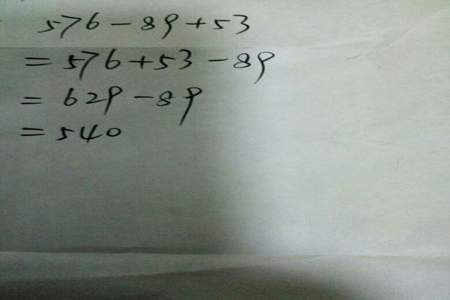 576-89+53
=576+53-89
=629-89
=540